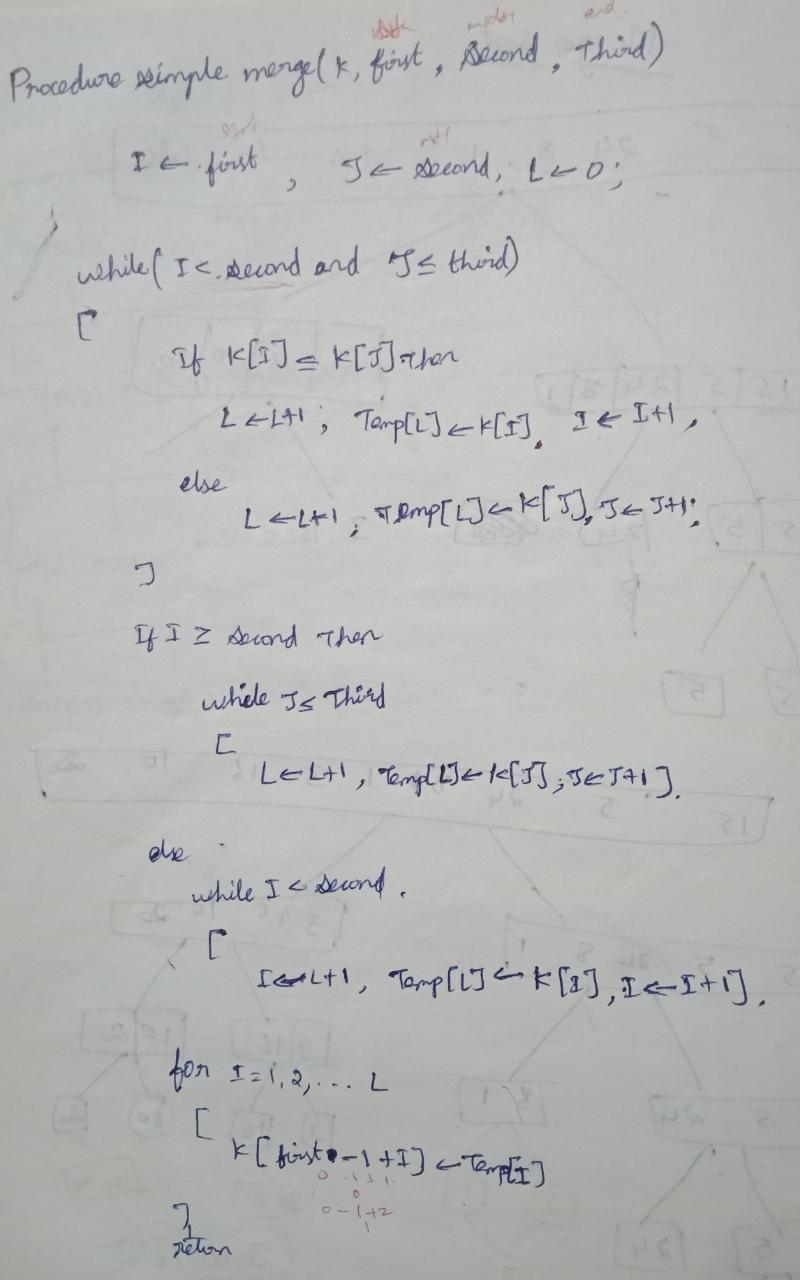 mid+1 end.
Procedure simple merge(K, first, Second, Third)
I ← first, J ← Second, L ← 0;
while( I < second and J ≤ third)
[
If K[I] ≤ K[J] Then
L ← L+1; Temp[L] ← K[I], I ← I+1,
else
L ← L+1; Temp[L] ← K[J], J ← J+1;
]
If I ≥ second Then
while J ≤ Third
[
L ← L+1, Temp[L] ← K[J]; J ← J+1].
else
while I < second.
[
I ← L+1, Temp[L] ← K[I], I ← I+1].
for I = 1, 2, ... L
[
K[first - 1 + I] ← Temp[I]
0 -1+1
0
0 - 1 +2
1
]
return